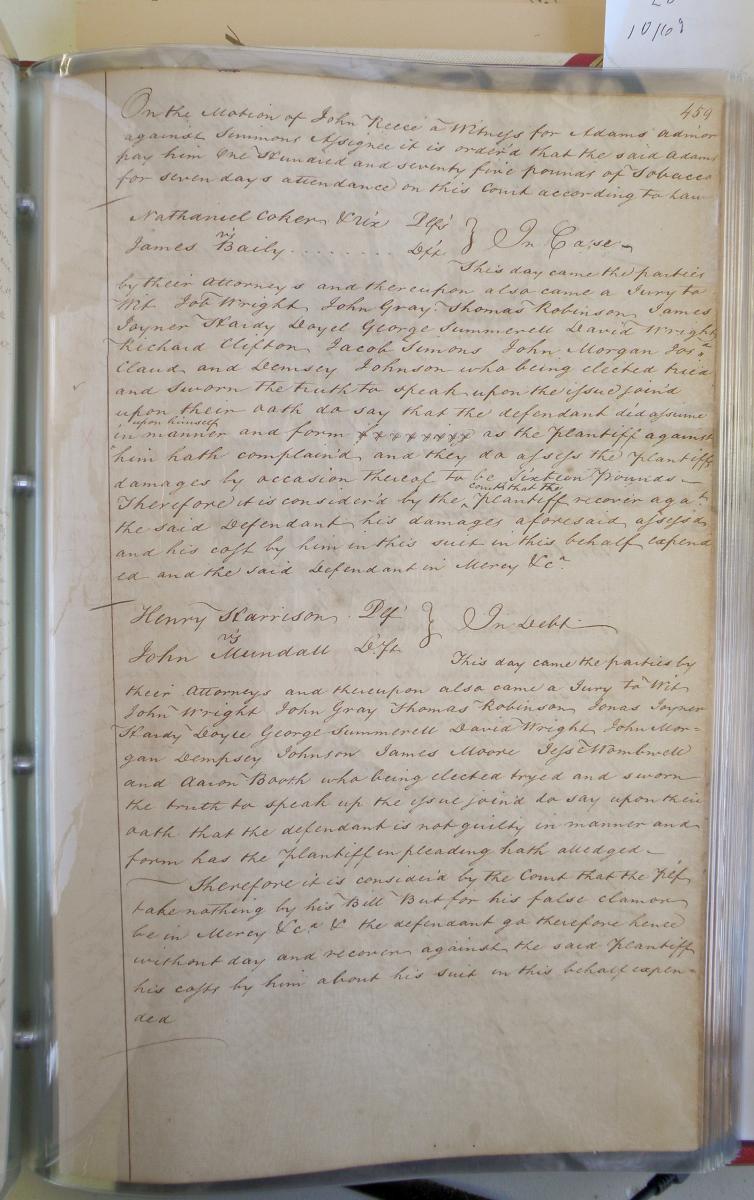 10/69
459
On the Motion of John Reece a Witness for Adams admor
against Simmons Assignee it is order'd that the said Adams
pay him One Hundred and seventy five pounds of Tobacco
for seven days attendance on this Court according to Law
Nathaniel Coker &c Plfs
vs } In Case
James Baily . . . . . . . . Dft
This day came the parties
by their Attorneys and thereupon also came a Jury to
Wit Job Wright John Gray Thomas Robinson James
Joyner Hardy Doyel George Summerell David Wright
Richard Clifton Jacob Simons John Morgan Jos:
Claud and Demsey Johnson who being elected tried
and sworn the truth to speak upon the issue join'd
upon their oath do say that the defendant did assume
upon himself
in manner and form as the Plantiff against
him hath complain'd and they do assess the Plantiffs
damages by occasion thereof to be Sixteen Pounds
Court that the
Therefore it is consider'd by the ^ Plantiff recover agat
the said Defendant his damages aforesaid assess'd
and his cost by him in this suit in this behalf expend
ed and the said Defendant in Mercy &ca
Henry Harrison Plf
vs } In Debt
John Mundall Dft
This day came the parties by
their Attorneys and thereupon also came a Jury to Wit
John Wright John Gray Thomas Robinson Jonas Joyner
Hardy Doyle George Summerell David Wright John Mor=
gan Dempsey Johnson James Moore Jesse Wombwell
and Aaron Booth who being elected tryed and sworn
the truth to speak up the issue join'd do say upon their
oath that the defendant is not guilty in manner and
form has the Plantiff in pleading hath alledged
Therefore it is consider'd by the Court that the Plf
take nothing by his Bill But for his false clamor
be in Mercy &ca & the defendant go therefore hence
without day and recover against the said Plantiff
his costs by him about his suit in this behalf expen=
ded